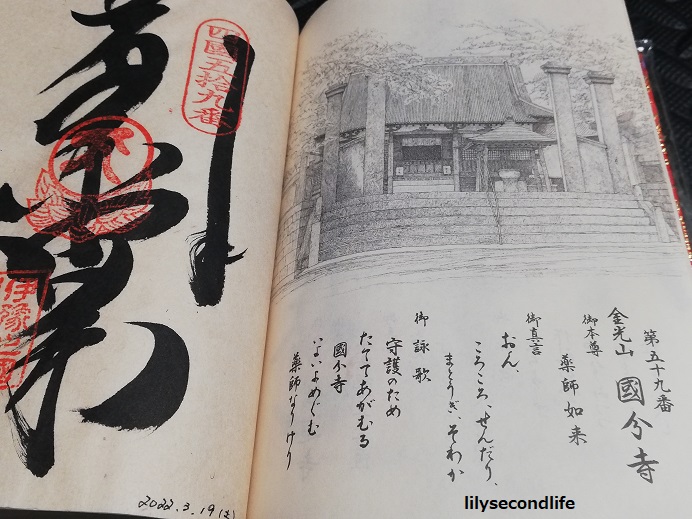 第五十九番
金光山 國分寺
御本尊
薬師如来
御真言
おん、
ころころ、せんだり、
まとうぎ、そわか
御詠歌
守護のため
たててあがむる
國分寺
いよいよめぐむ
薬師なりけり
四國五拾九番
伊豫
2022.3.19(土)
lilysecondlife